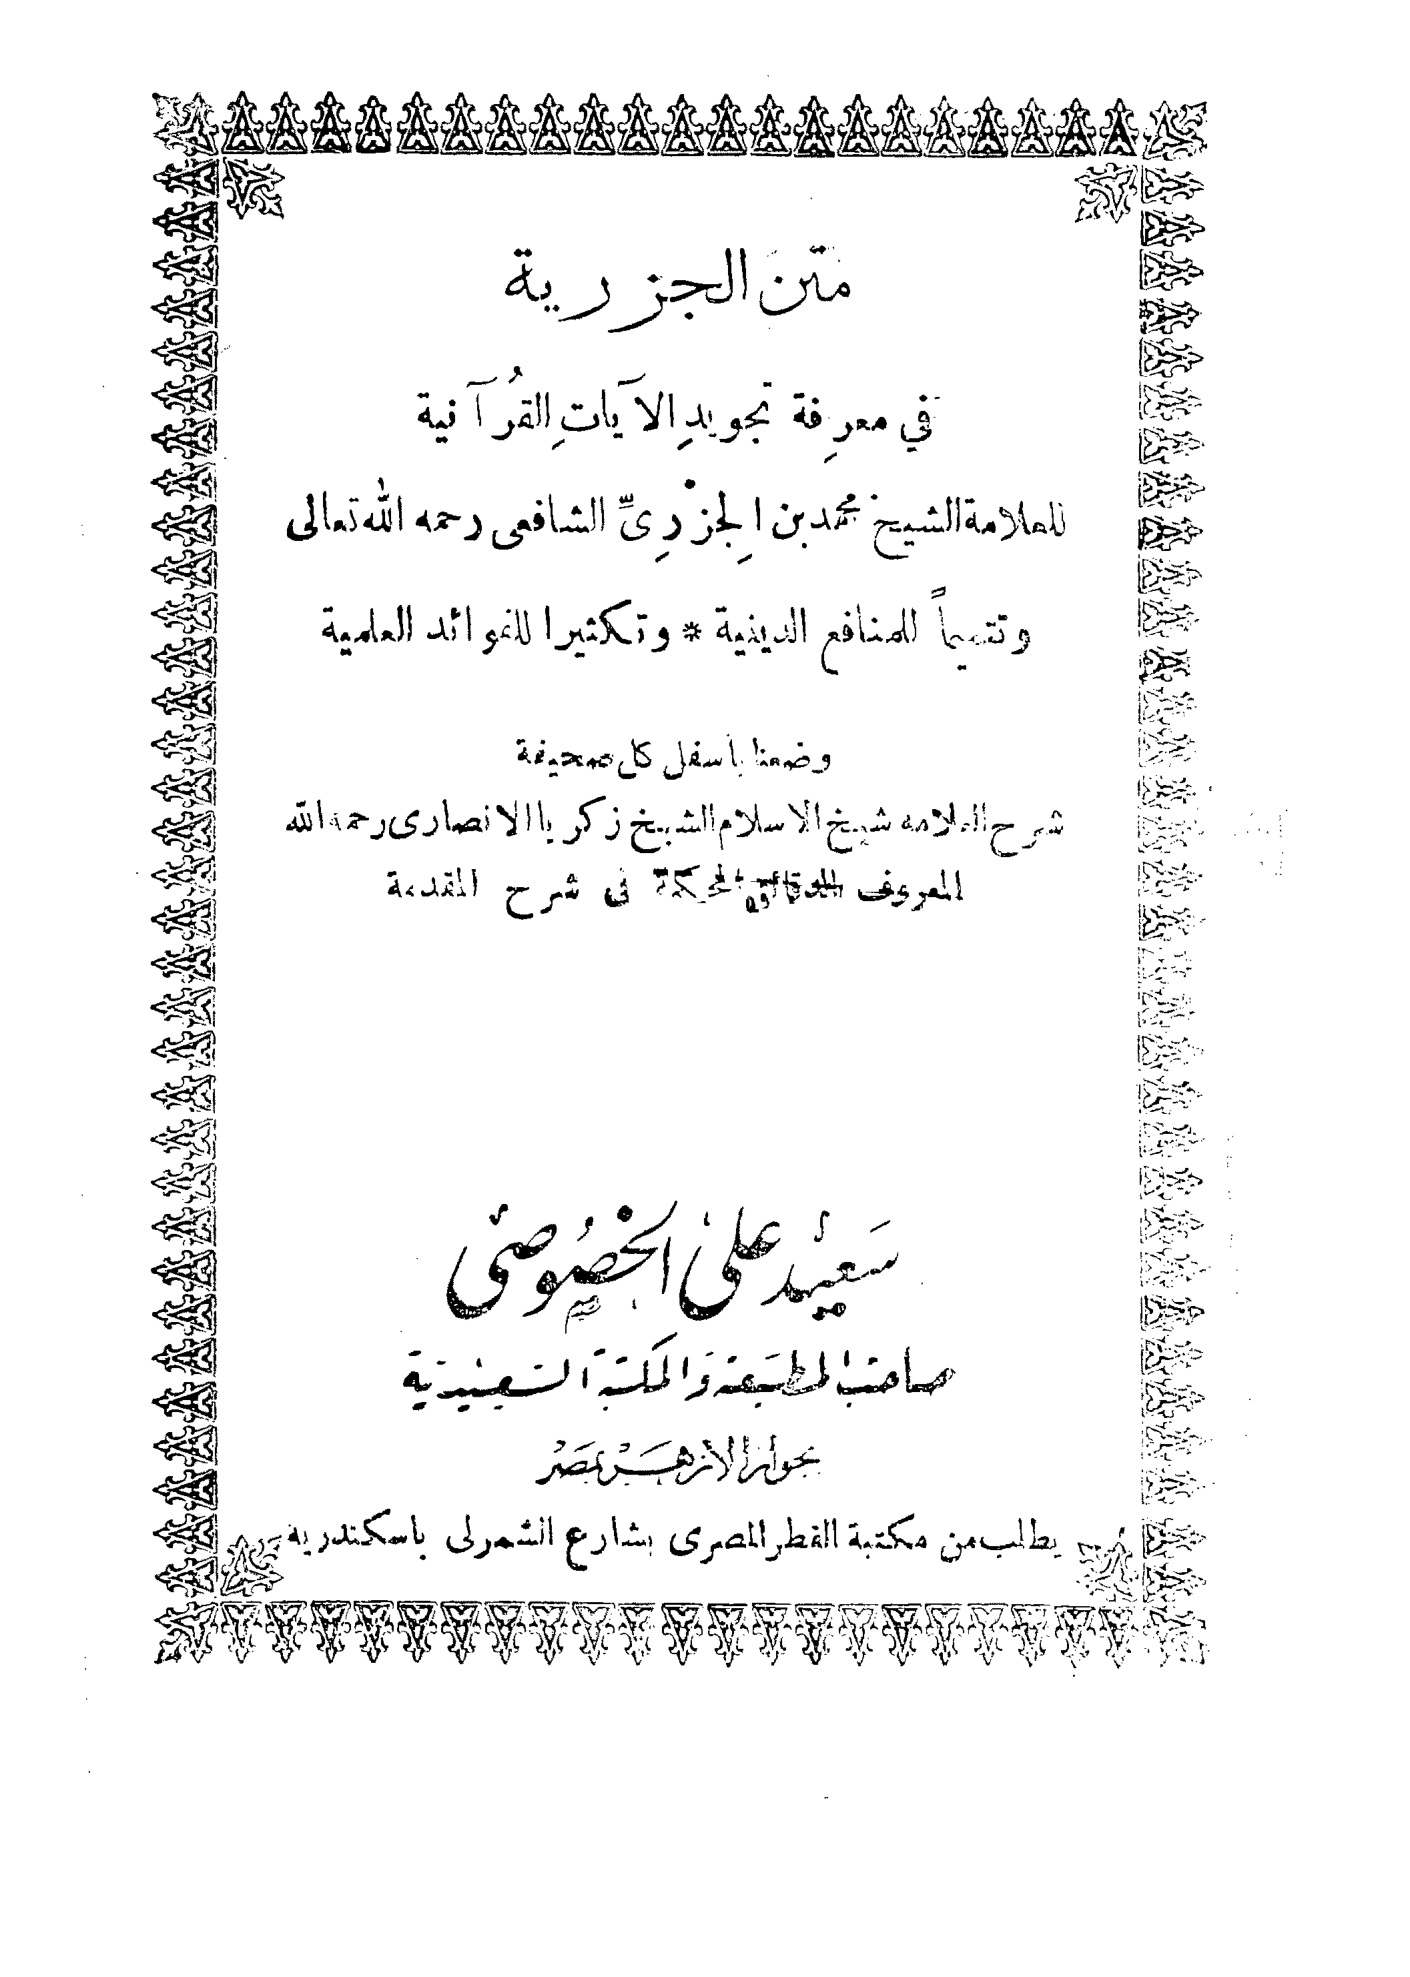 متن الجزرية
في معرِفة تجويدِ الآياتِ القُرآنية
للعلامة الشيخ محمد بن الجِزْرِىِّ الشافعى رحمه الله تعالى
وتتميماً للمنافع الدينية * وتكثيرا للفوائد العلمية
وضعنا بأسفل كل صحيفة
شرح العلامه شيخ الاسلام الشيخ زكريا الانصارى رحمه الله
المعروف بالدقائق المحكمة فى شرح المقدمة
سعيد على الخصوصى
صاحب المطبعة والمكتبة السعيدية
بجوار الأزهر بمصر
يطلب من مكتبة القطر المصرى بشارع الشمرلى باسكندرية